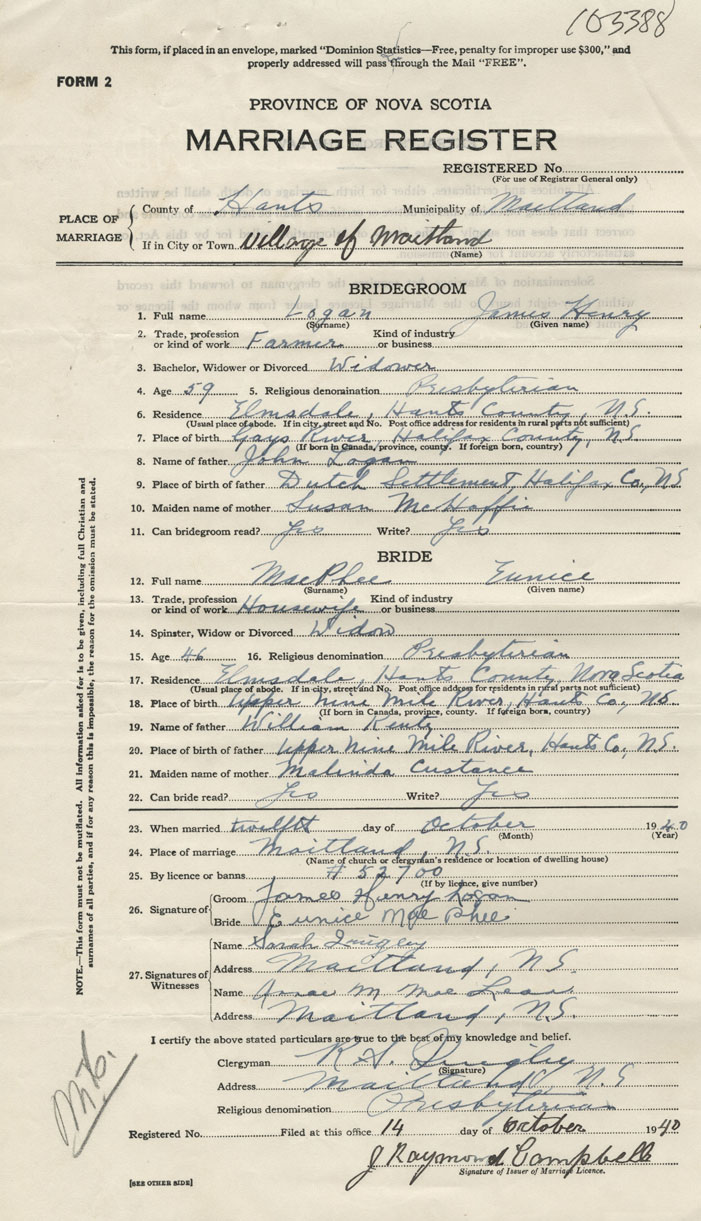 103388
This form, if placed in an envelope, marked "Dominion Statistics—Free, penalty for improper use $300," and
properly addressed will pass through the Mail "FREE".
FORM 2
PROVINCE OF NOVA SCOTIA
MARRIAGE REGISTER
REGISTERED No.
(For use of Registrar General only)
PLACE OF MARRIAGE
County of Hants Municipality of Maitland
If in City or Town Village of Maitland
(Name)
BRIDEGROOM
1. Full name Logan James Henry
(Surname) (Given name)
2. Trade, profession or kind of work Farmer Kind of industry or business
3. Bachelor, Widower or Divorced Widower
4. Age 59 5. Religious denomination Presbyterian
6. Residence Elmsdale, Hants County, N.S.
(Usual place of abode. If in city, street and No. Post office address for residents in rural parts not sufficient)
7. Place of birth Gays River, Halifax County, N.S
(If born in Canada, province, county. If foreign born, country)
8. Name of father John Logan
9. Place of birth of father Dutch Settlement, Halifax Co., N.S
10. Maiden name of mother Susan McHaffie
11. Can bridegroom read? Yes Write? Yes
BRIDE
12. Full name MacPhee Eunice
(Surname) (Given name)
13. Trade, profession or kind of work Housewife Kind of industry or business
14. Spinster, Widow or Divorced Widow
15. Age 46 16. Religious denomination Presbyterian
17. Residence Elmsdale, Hants County, Nova Scotia
(Usual place of abode. If in city, street and No. Post office address for residents in rural parts not sufficient)
18. Place of birth Upper Nine Mile River, Hants Co., N.S.
(If born in Canada, province, county. If foreign born, country)
19. Name of father William
20. Place of birth of father Upper Nine Mile River, Hants Co., N.S.
21. Maiden name of mother Malinda Custance
22. Can bride read? Yes Write? Yes
23. When married twelfth day of October 1940
(Month) (Year)
24. Place of marriage Maitland, N.S.
(Name of church or clergyman's residence or location of dwelling house)
25. By licence or banns # 52700
(If by licence, give number)
26. Signature of
Groom James Henry Logan
Bride Eunice MacPhee
27. Signatures of Witnesses
Name Sarah
Address Maitland, N.S.
Name M. MacLean
Address Maitland, N.S.
I certify the above stated particulars are true to the best of my knowledge and belief.
Clergyman R.A.
(Signature)
Address Maitland, N.S
Religious denomination Presbyterian
Registered No. Filed at this office 14 day of October 1940
J Raymond Campbell
Signature of Issuer of Marriage Licence.
[SEE OTHER SIDE]
NOTE.—This form must not be mutilated. All information asked for is to be given, including full Christian and
surnames of all parties, and if for any reason this is impossible, the reason for the omission must be stated.